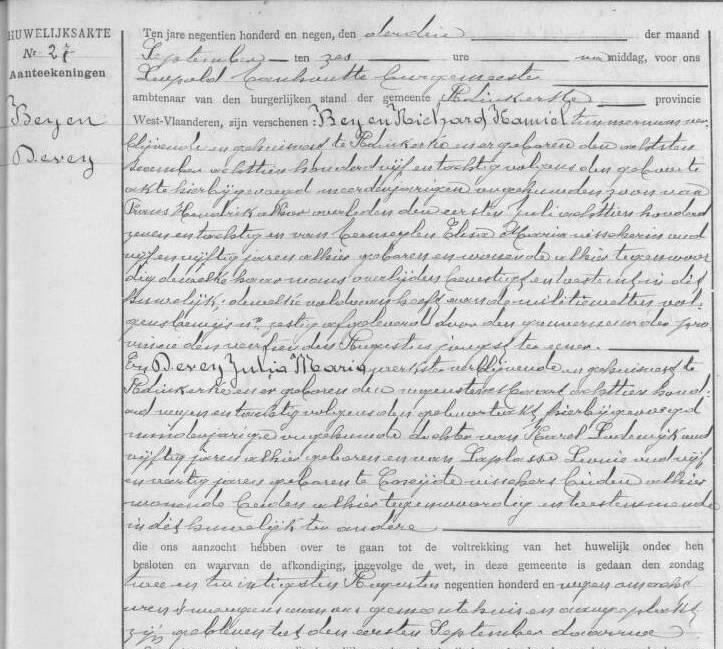 HUWELIJKSAKTE
Nr 27
Aanteekeningen
Beyen
Devey
Ten jare negentien honderd en negen, den derden der maand
September ten zes ure na middag, voor ons
Leopold Vanhoutte burgemeester
ambtenaar van den burgerlijken stand der gemeente Adinkerke provincie
West-Vlaanderen, zijn verschenen: Beyen Richard Kamiel timmerman ver-
blijvende en gehuisvest te Adinkerke en er geboren den achtsten
achttien honderd vijf en tachtig volgens den geboorte
akte hier bijgevoegd meerderjarigen ongehuwden zoon van
Frans Hendrik alhier overleden den eersten Juli achttien honderd
zeven en tachtig en van Elisa Maria visscherin oud
vijf en vijftig jaren alhier geboren en wonende alhier tegenwoor
dig dewelke haar mans overlijden bevestigt en toestemt in dit
huwelijk; dewelke voldaan heeft aan de militiewetten vol-
gens bewijs nr zestig afgeleverd door den gouverneur der pro
vincie den veertienden Augustus jongst ter eener.
En Devey Julia Maria verblijvende en gehuisvest te
Adinkerke en er geboren den negensten Maart achttien hond-
erd negen en tachtig volgens den geboorteakt hierbijgevoegd
minderjarige ongehuwde dochter van Karel Lodewijk oud
vijftig jaren alhier geboren en van Laplasse Leonie oud vijf
en veertig jaren geboren te Coxijde visschers beiden alhier
wonende beiden alhier tegenwoordig en toestemmende
in dit huwelijk ter andere
die ons aanzocht hebben over te gaan tot de voltrekking van het huwelijk onder hen
besloten en waarvan de afkondiging, ingevolge de wet, in deze gemeente is gedaan den zondag
twee en twintigsten Augustus negentien honderd en negen om acht
uren 's morgens aan ons gemeentehuis en aangeplakt
zijn gebleven tot den eersten September daarna